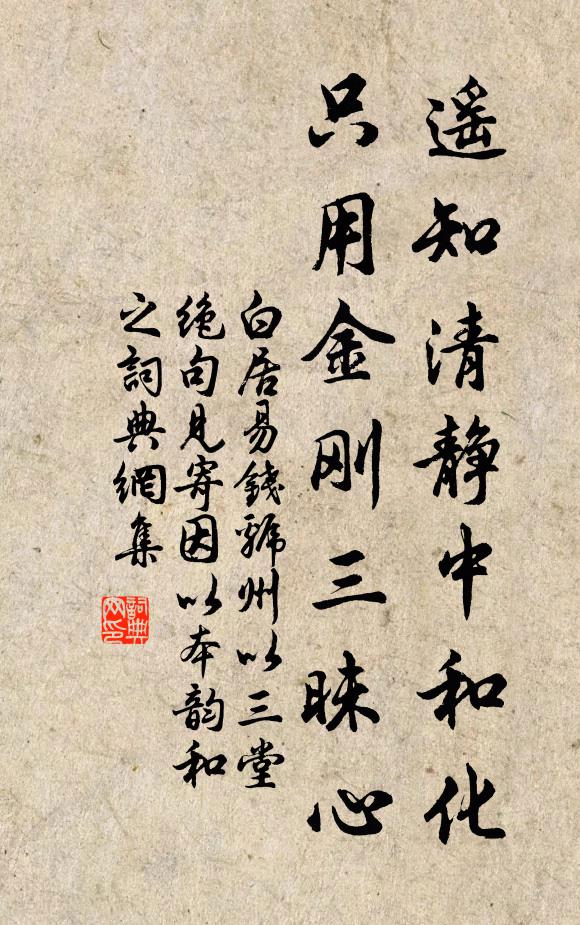 遥知清静中和化
只用金刚三昧心
白居易錢虢州以三堂
绝句見寄因以本韵和
之詞典網集
詞典
网印